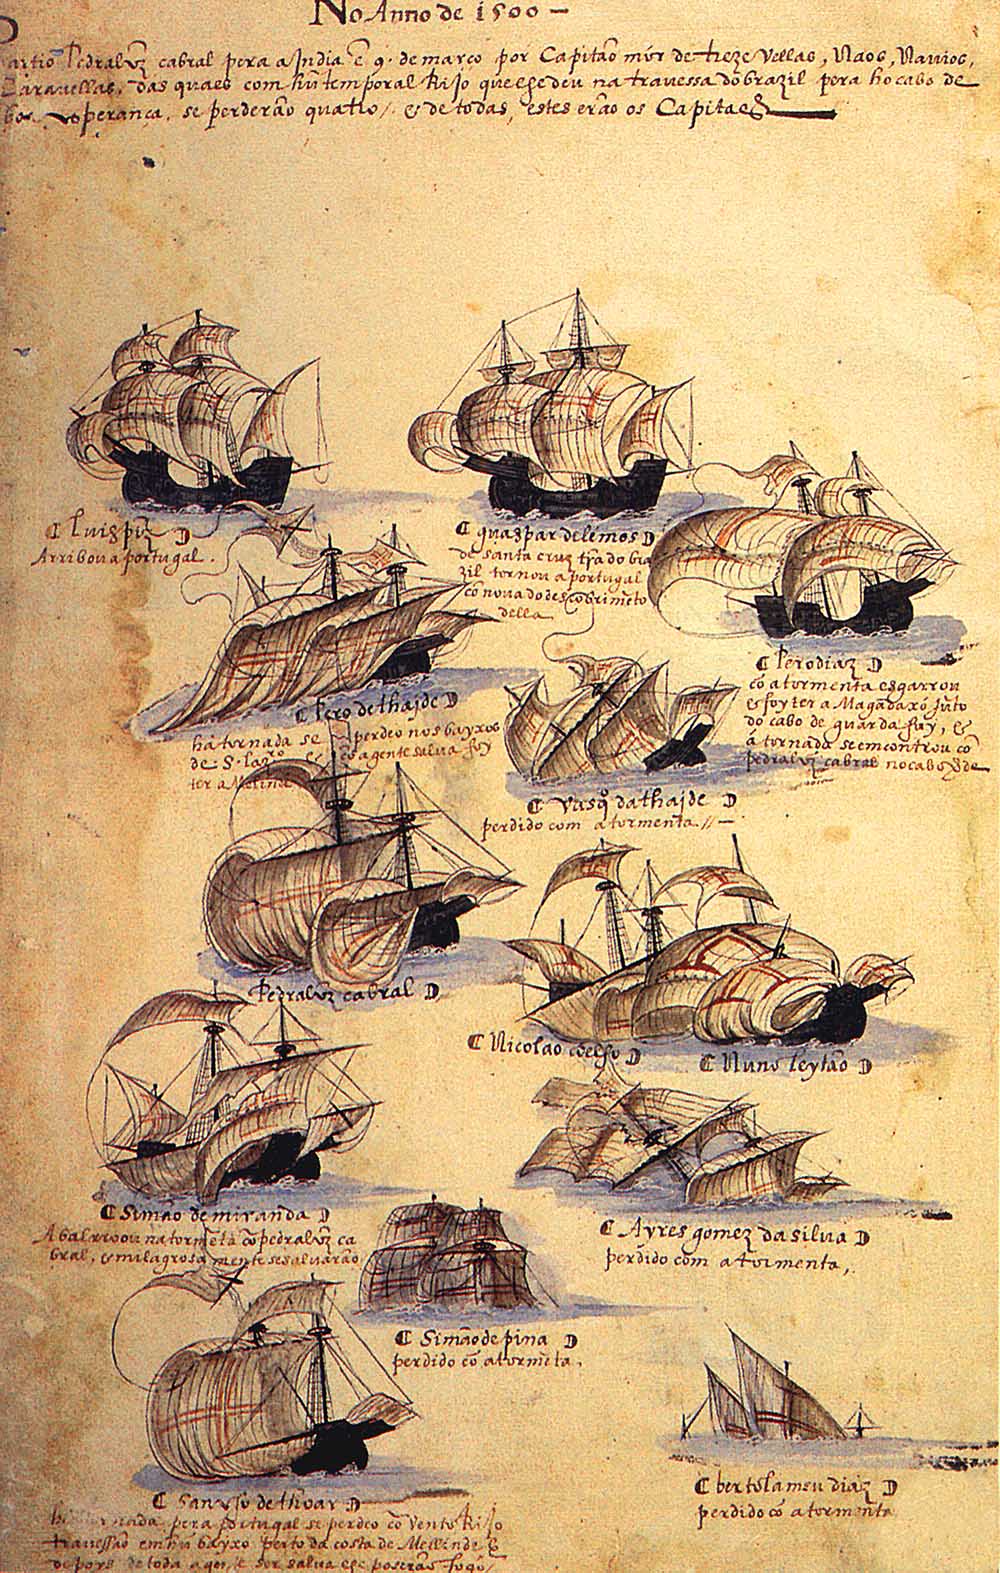 No Anno de 1500 —
Partio Pedraluz cabral pera a India e 9. de março por Capitão mór de treze Vellas, Naos, Navios,
Caravellas, das quaes com hũ temporal Rijo que lhe deu na travessa do brazil pera ho cabo de
boa esperança, se perderão quatro /. & de todas, estes erão os Capitaẽs
Luis piz
Arribou a portugal.
guaspar de lemos
de santa cruz tr̃a do bra
zil tornou a portugal
cõ nova do descobrimẽto
della
Pero diaz
cõ a tormenta esgarrou
e foy ter a Magadaxó jũto
do cabo de guarda fuy, &
á tornada se emcontrou cõ
pedraluz cabral no cabo
Pero de thajde
há tornada se perdeo nos bayxos
de S. lazo e a gente salva foy
ter a Melinde
vasq̃ dathajde
perdido com a tormenta // —
Pedraluz cabral
Nicolao coelho
Nuno leytão
Simão de miranda
Abalrroou na tormẽta cõ pedraluz ca
bral, & milagrosa mente se salvarão
Ayres gomez da silva
perdido com a tormenta,.
Simão de pina
perdido cõ a tormẽta.
Sancho de thoar
tornada pera portugal se perdeo cõ vento Rijo
travessão em hũ bayxo perto da costa de Mellinde &
de poys de toda a gẽte ser salva lhe poserão fogo /
bertolameu diaz
perdido cõ a tormenta